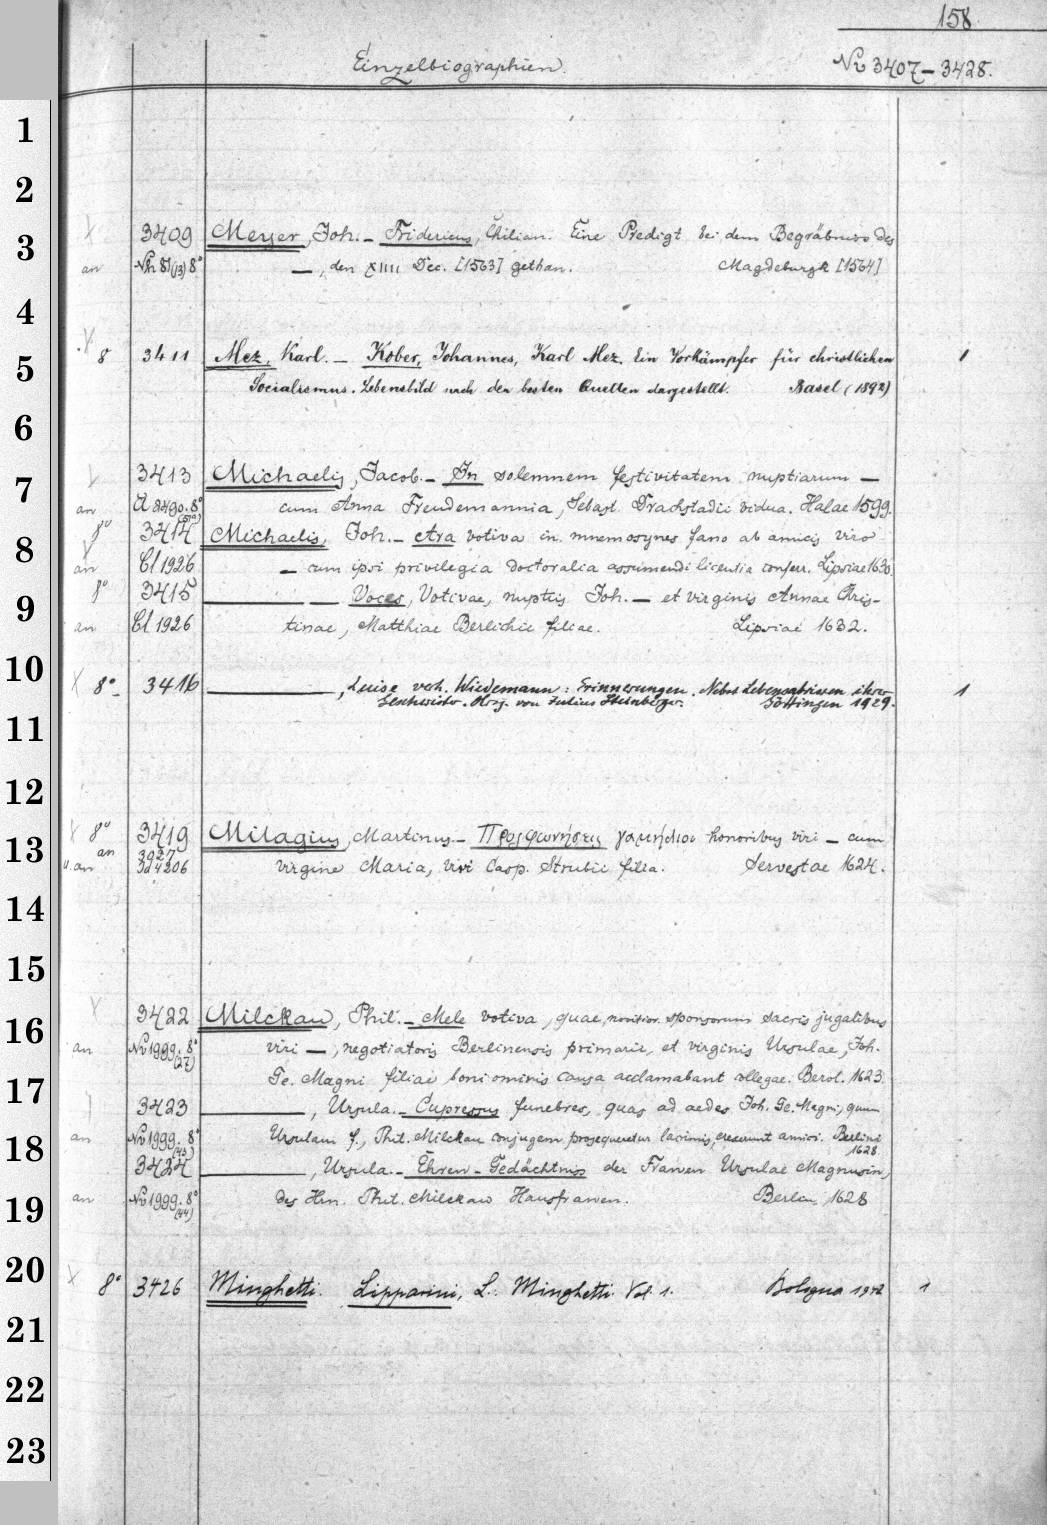 158
Einzelbiographien.
No 3407–3428.
1
2
3
3409 Meyer, Joh. – Fridericus, Chilian. Eine Predigt bei dem Begräbniss des
an 8° —, den XIIII Dec. [1563] gethan. Magdeburgk [1564]
4
8 3411 Mez, Karl. – Kober, Johannes, Karl Mez. Ein Vorkämpfer für christlichen 1
5
Socialismus. Lebensbild nach den besten Quellen dargestellt. Basel (1892)
6
3413 Michaelis, Jacob. – In solemnem festivitatem nuptiarum —
7
an cum Anna Freudemannia, Sebast. Drachstadii vidua. Halae 1599.
8° 3414 Michaelis, Joh. – Ara votiva in mnemosynes fano ab amicis viro
8
an Cl 1926 — cum ipsi privilegia doctoralia assumendi licentia conferr. Lipsiae 1630
8° 3415 —— — Voces, Votivae, nuptiis Joh. — et virginis Annae Chris-
9
an Cl 1926 tinae, Matthiae Berlichii filiae. Lipsiae 1632.
10
8° 3416 ——, Luise verh. Wiedemann: Erinnerungen. Nebst Lebensabrissen ihrer 1
Geschwister. Hrsg. von Julius Steinberger. Göttingen 1929.
11
12
8° 3419 Milagius, Martinus – Προσφωνήσεις γαμήλιοι honoribus viri — cum
13
an
u. an virgine Maria, viri Casp. Strubii filia. Servestae 1624.
14
15
3422 Milckau, Phil. – Mele votiva, quae sponsorum sacris jugalibus
16
an No 1999. 8° (27) viri —, negotiatoris Berlinensis primarii, et virginis Ursulae, Joh.
Ge. Magni filiae boni ominis causa acclamabant collegae. Berol. 1623
17
3423 ——, Ursula. – Cupressus funebres, quas ad aedes Joh. Ge. Magni, quum
an No 1999. 8° (43) Ursulam f., Phil. Milckau conjugem prosequeretur lacrimis, erexerunt amici. Berlini 1628.
18
3424 ——, Ursula. – Ehren-Gedächtniss der Frawen Ursulae Magnusin,
an No 1999. 8° (44) des Hrn. Phil. Milckaw Hausfrawen. Berlin 1628
19
20
8° 3426 Minghetti. Lipparini, L.: Minghetti. Vol. 1. Bologna 1942 1
21
22
23